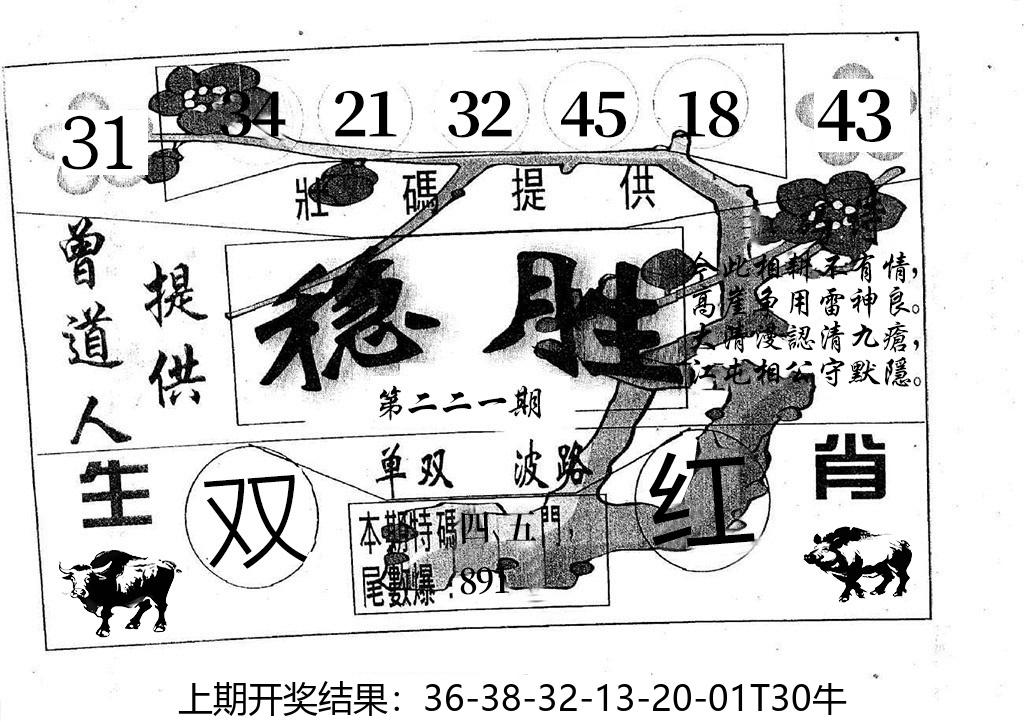 31 34 21 32 45 18 43
壯碼提供
曾道人
提供
稳胜
第二二一期
今此相耕不有情,
高崖重用雷神良。
大清漫認清九瘡,
江屯相公守默隱。
单双 波路
生 肖
双 红
本期特碼四、五門,
尾數爆:891
上期开奖结果:36-38-32-13-20-01T30牛